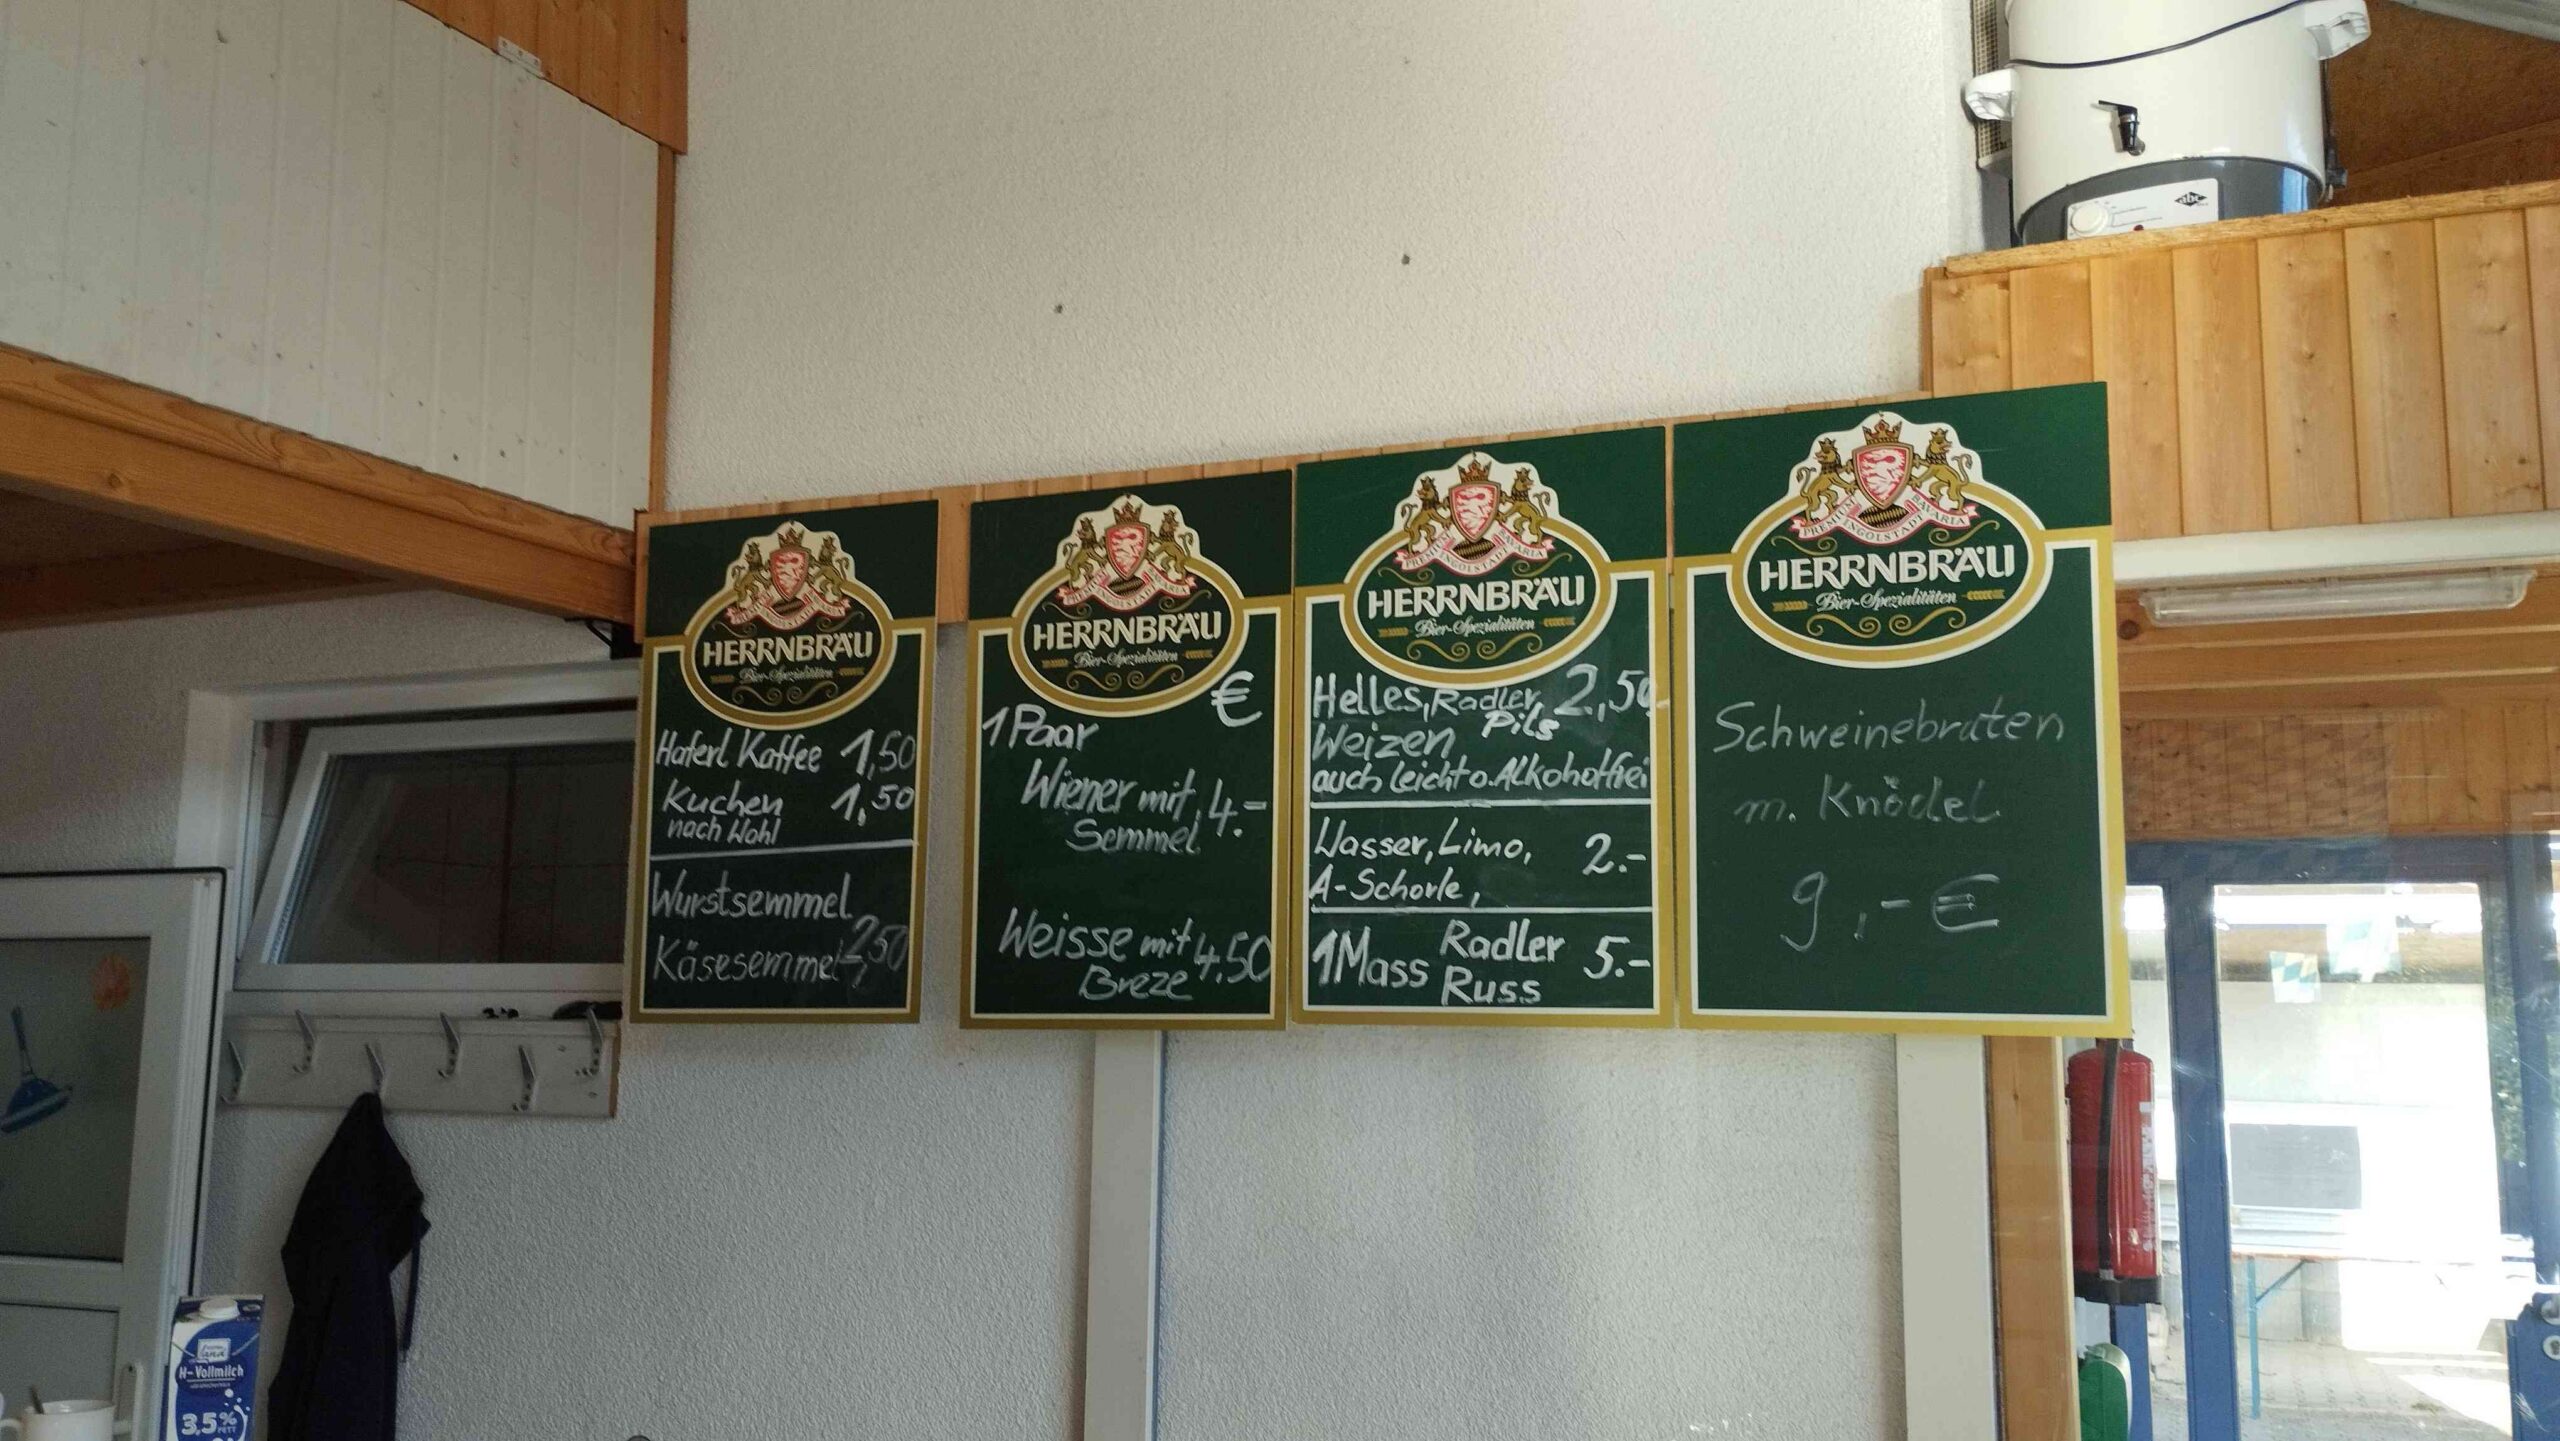 abc
PREMIUM BAVARIA
INGOLSTADT
HERRNBRÄU
Bier-Spezialitäten
Haferl Kaffee 1,50
Kuchen 1,50
nach Wahl
Wurstsemmel
Käsesemmel 2,50
PREMIUM BAVARIA
INGOLSTADT
HERRNBRÄU
Bier-Spezialitäten
€
1 Paar
Wiener mit 4.-
Semmel
Weisse mit 4.50
Breze
PREMIUM BAVARIA
INGOLSTADT
HERRNBRÄU
Bier-Spezialitäten
Helles, Radler, 2,50
Weizen Pils
auch leicht o. Alkoholfrei
Wasser, Limo, 2.-
A-Schorle,
1 Mass Radler 5.-
Russ
PREMIUM BAVARIA
INGOLSTADT
HERRNBRÄU
Bier-Spezialitäten
Schweinebraten
m. Knödel
9,- €
H-Vollmilch
3,5%
FETT